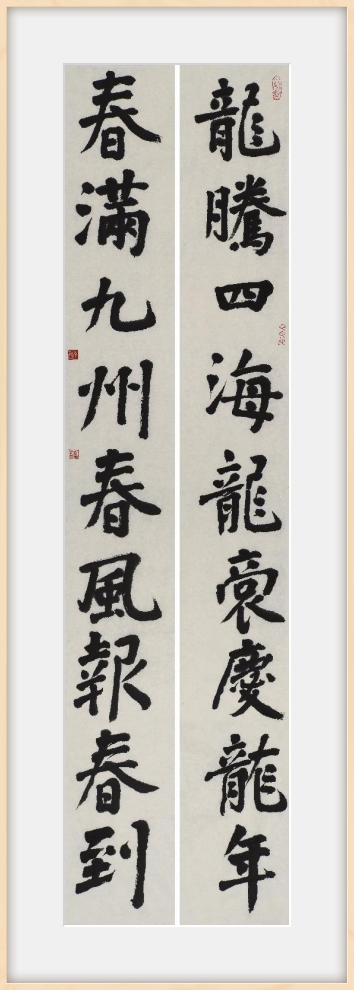 龍騰四海龍裔慶龍年
春滿九州春風報春到